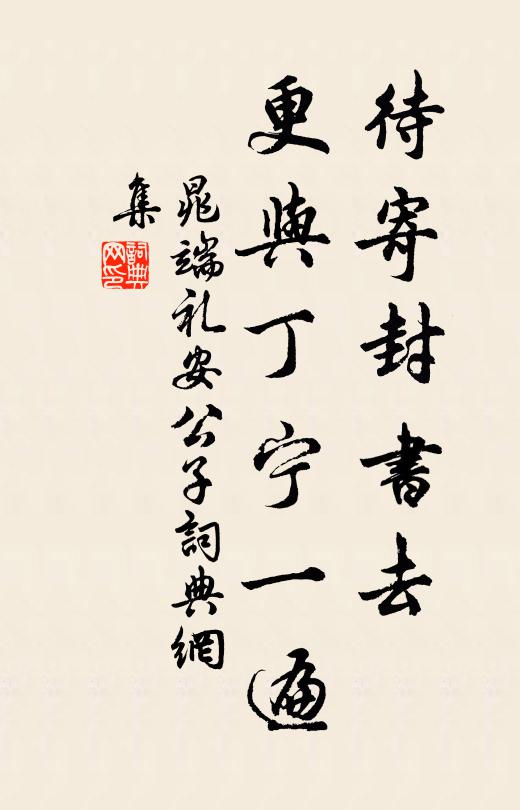 待寄封書去
更與丁宁一遍
晁端礼安公子詞典網
集
詞典
网印